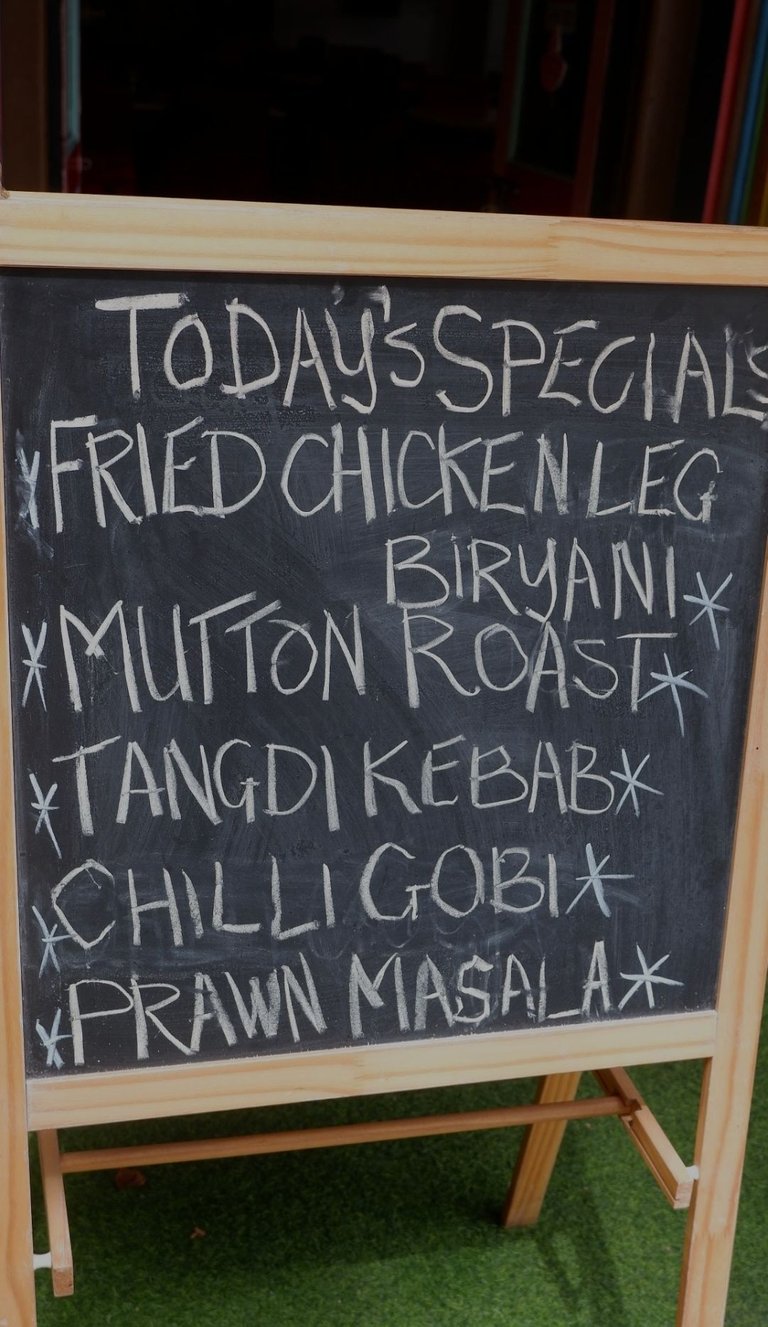 TODAY'S SPECIALS
* FRIED CHICKEN LEG
BIRYANI *
* MUTTON ROAST *
* TANGDI KEBAB *
* CHILLI GOBI *
* PRAWN MASALA *